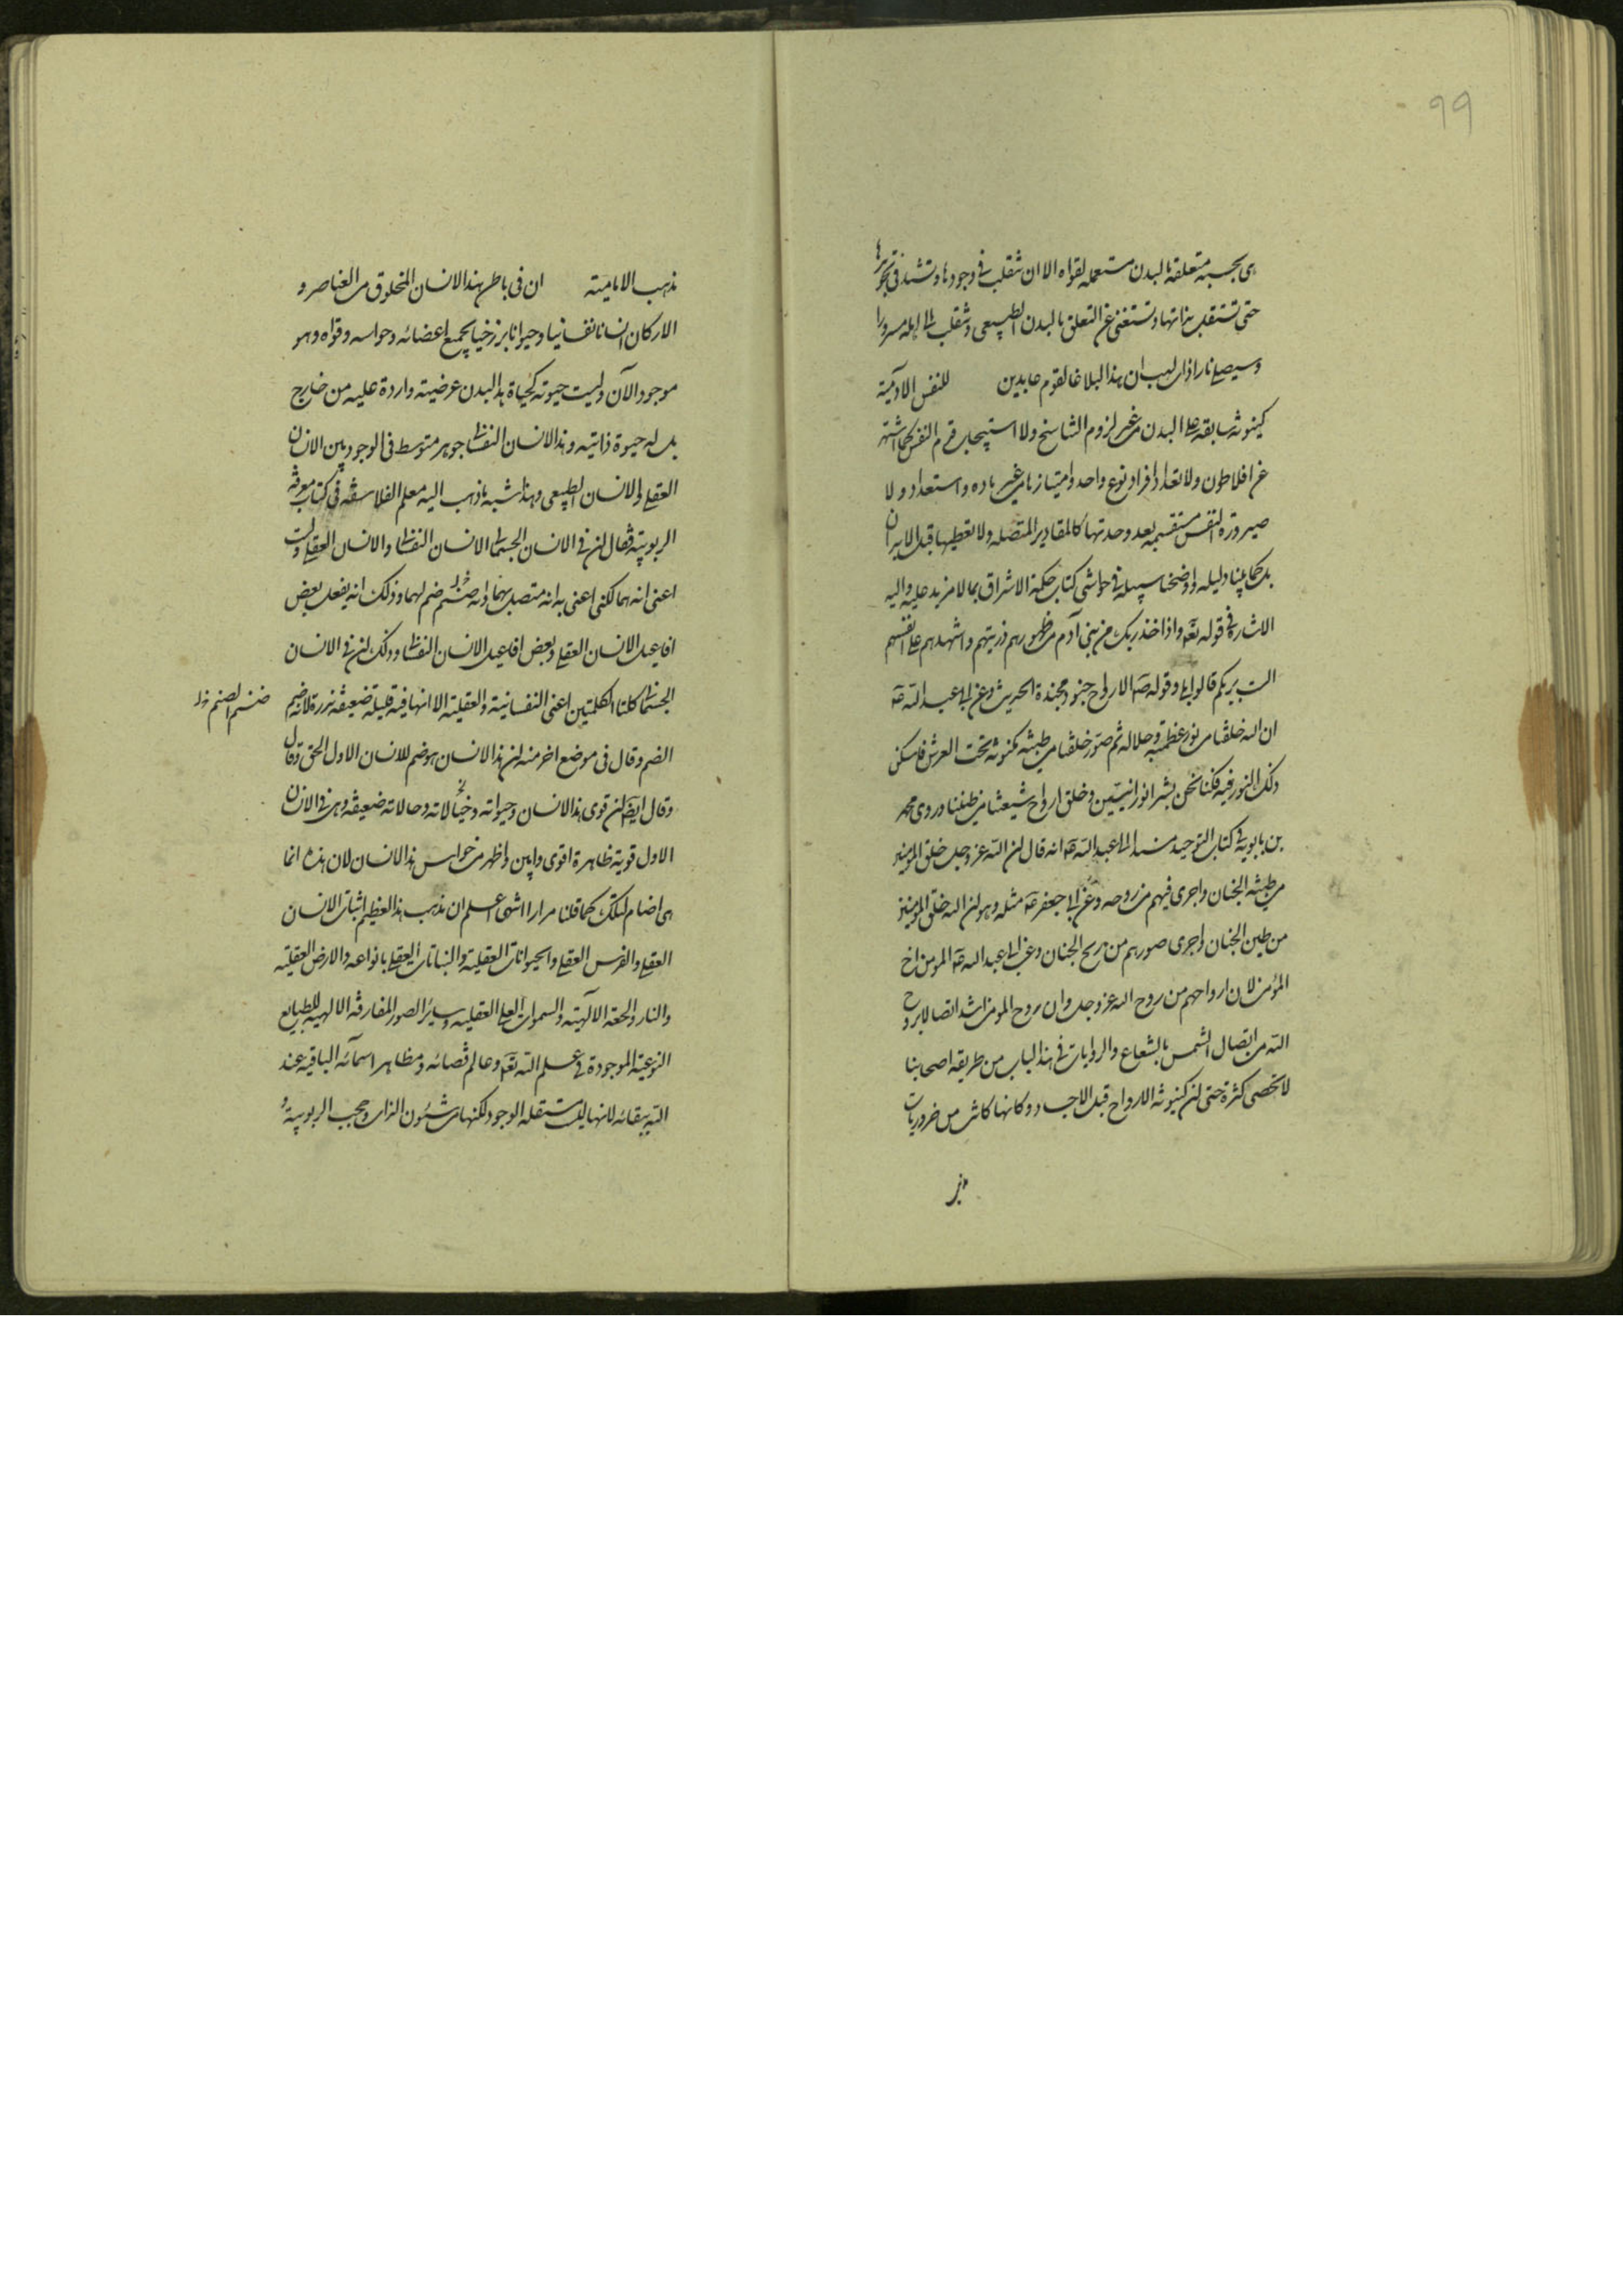 ٩٩
هی بحسبه متعلقة بالبدن مستعملة لقواه الا ان تنقلب فی وجودها وتشتد فی تجوهرها
حتی تستقل بذاتها وتستغنی عن التعلق بالبدن الطبیعی وتنقلب الی اهله مسرورا
وسیصلی نارا ذات لهب ان هذا لبلاغا لقوم عابدین للنفس الادمیة
کینونة سابقة علی البدن من غیر لزوم التناسخ ولا استیجاب قدم النفس کما اشتهر
عن افلاطون ولا تعدد افراد نوع واحد وامتیازها من غیر ماده واستعداد ولا
صیرورة النفس منقسمة بعد وحدتها کالمقادیر المتصله ولا تعطیلها قبل الابدان
بل کما بینا دلیله واوضحنا سبیله فی حواشی کتاب حکمة الاشراق بما لا مزید علیه والیه
الاشارة فی قوله تعه واذا خذ ربک من بنی آدم من ظهورهم ذریتهم واشهدهم علی انفسهم
الست بربکم قالوا بلی وقوله صه الارواح جنود مجندة الحدیث وعن ابی عبد الله عه
ان الله خلقنا من نور عظمته وجلاله ثم صور خلقنا من طینة مکنونة تحت العرش فاسکن
ذلک النور فیه فکنا نحن بشرا نورانیین وخلق ارواح شیعتنا من طینتنا وروی محمد
بن بابویه فی کتاب التوحید مسندا الی ابی عبد الله عه انه قال ان الله عز وجل خلق المومنین
من طینة الجنان واجری فیهم من روحه وعن ابی جعفر عه مثله وهو ان الله خلق المومنین
من طین الجنان واجری صورهم من ریح الجنان وعن ابی عبد الله عه المومن اخ
المؤمن لان ارواحهم من روح الله عز وجل وان روح المومن اشد اتصالا بروح
الله من اتصال الشمس بالشعاع والروایات فی هذا الباب من طریقه اصحابنا
لا تحصی کثرة حتی ان کینونة الارواح قبل الاجساد وکانها کانت من ضروریات
مذهب الامامیة ان فی باطن هذا الانسان المخلوق من العناصر و
الارکان انسانا نفسانیا وحیوانا برزخیا بجمیع اعضائه وحواسه وقواه وهو
موجود الآن ولیست حیوته کحیاة هذا البدن عرضیته واردة علیه من خارج
بل له حیوة ذاتیه وهذا الانسان النفسا جوهر متوسط فی الوجود بین الانسان
العقلی والانسان الطبیعی وهذا شبیه بما ذهب الیه معلم الفلاسفه فی کتاب معرفة
الربوبیة فقال ان فی الانسان الجسمانی الانسان النفسا والانسان العقلی ولست
اعنی انه هما لکنی اعنی به انه متصل بهما وانه صنم لهما وذلک انه یفعل بعض
افاعیل الانسان العقلی وبعض افاعیل الانسان النفسا وذلک ان فی الانسان
الجسما کلتا الکلمتین اعنی النفسانیة والعقلیة الا انها فیه قلیلة ضعیفة نزرة لانه صنم
صنم الصنم خ‌ل
الصنم وقال فی موضع اخر منه ان هذا الانسان هو صنم للانسان الاول الحق وقال
وقال ایضا ان قوی هذا الانسان وحیواته وحالاته ضعیفه وهی فی الانسان
الاول قویة ظاهرة اقوی وابین واظهر من حواس هذا الانسان لان هذه انما
هی اصنام لتلک کما قلنا مرارا انتهی اعلم ان مذهب هذا العظیم اثبات الانسان
العقلی والفرس العقلی والحیوانات العقلیة والنباتات العقلی بانواعه والارض العقلیه
والنار والجنة الالهیته والسموات العلی العقلیه وسایر الصور المفارقه الالهیه للطبایع
النوعیة الموجودة فی علم الله تعه وعالم قضائه ومظاهر اسمآئه الباقیه عند
الله ببقائه لانها لیست مستقله الوجود لکنها من شئون الذات وحجب الربوبیة و